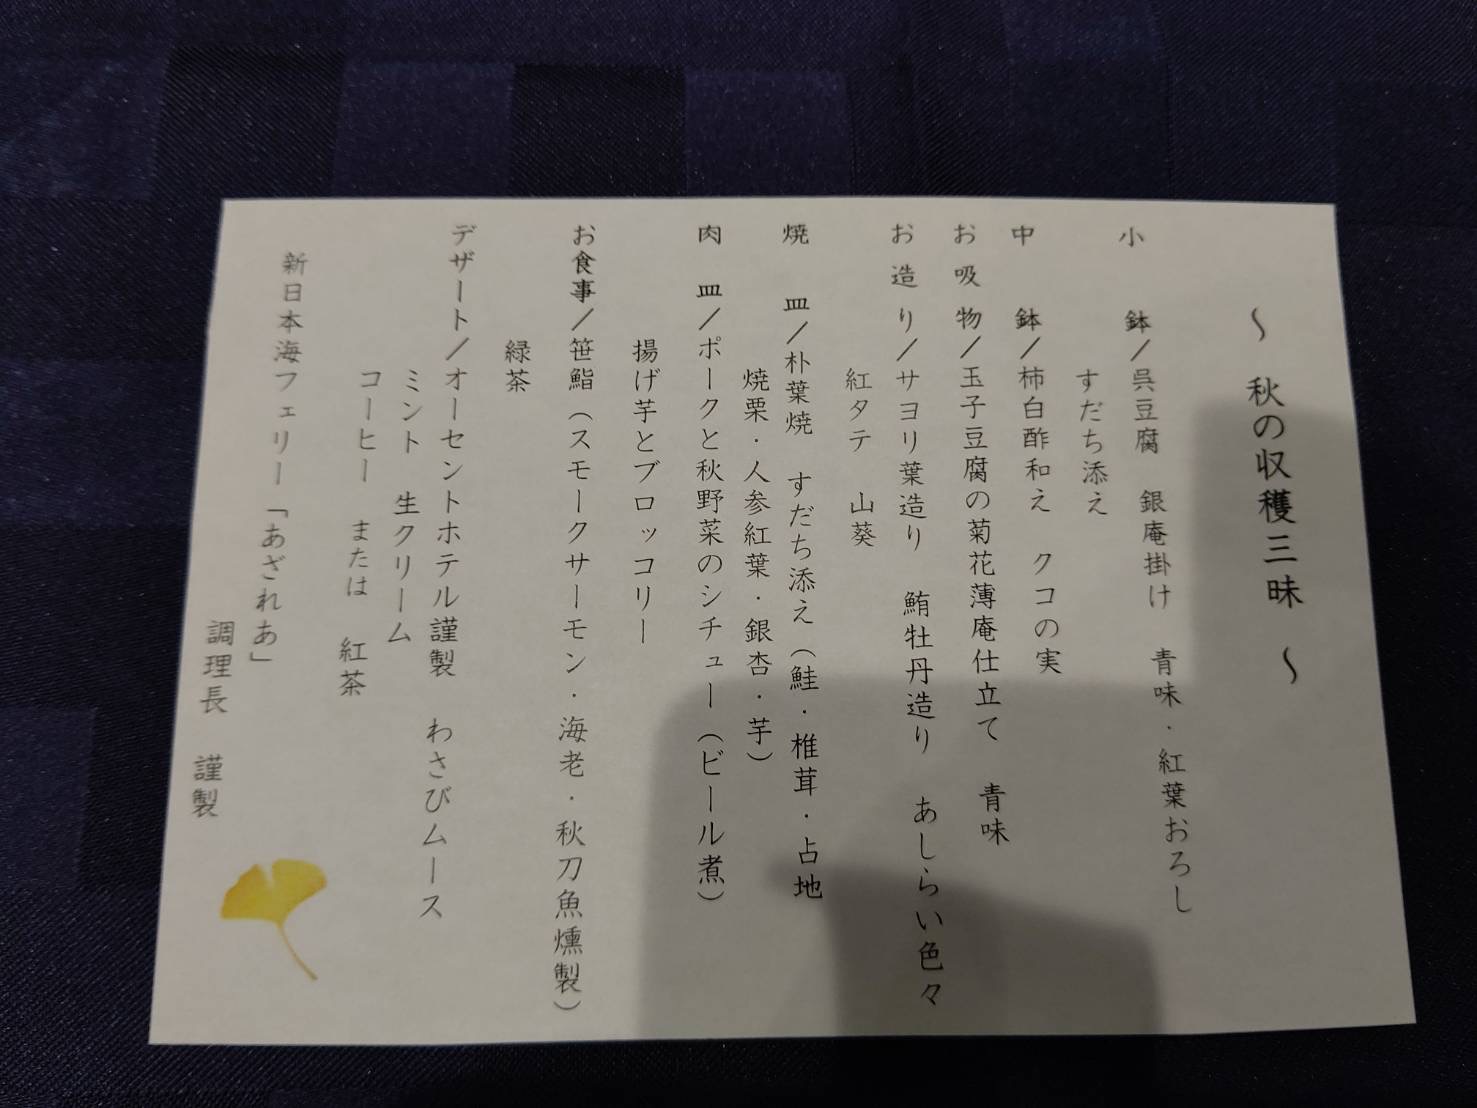 ～ 秋の収穫三昧 ～
小 鉢／呉豆腐 銀庵掛け 青味・紅葉おろし
すだち添え
中 鉢／柿白酢和え クコの実
お吸物／玉子豆腐の菊花薄庵仕立て 青味
お造り／サヨリ葉造り 鮪牡丹造り あしらい色々
紅タテ 山葵
焼 皿／朴葉焼 すだち添え（鮭・椎茸・占地
焼栗・人参紅葉・銀杏・芋）
肉 皿／ポークと秋野菜のシチュー（ビール煮）
揚げ芋とブロッコリー
お食事／笹鮨（スモークサーモン・海老・秋刀魚燻製）
緑茶
デザート／オーセントホテル謹製 わさびムース
ミント 生クリーム
コーヒー または 紅茶
新日本海フェリー「あざれあ」
調理長 謹製